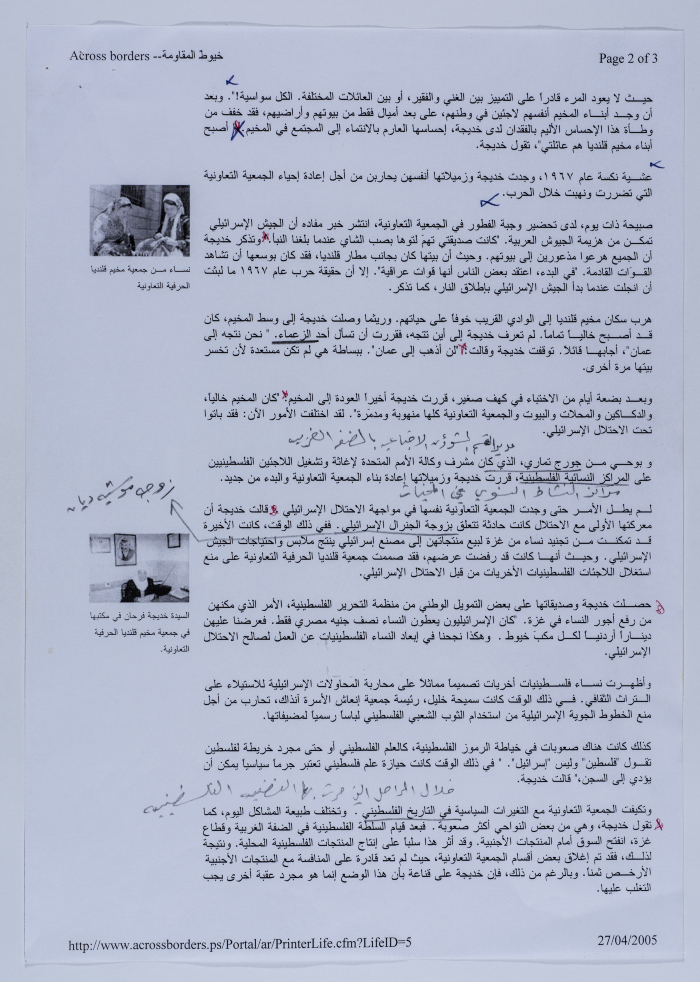 Across borders --خيوط المقاومة
Page 2 of 3
حيث لا يعود المرء قادراً على التمييز بين الغني والفقير، أو بين العائلات المختلفة. الكل سواسية!". وبعد
أن وجد أبناء المخيم أنفسهم لاجئين في وطنهم، على بعد أميال فقط من بيوتهم وأراضيهم، فقد خفف من
وطأة هذا الإحساس الأليم بالفقدان لدى خديجة، إحساسها العارم بالانتماء إلى المجتمع في المخيم. أصبح
أبناء مخيم قلنديا هم عائلتي"، تقول خديجة.
عشية نكسة عام ١٩٦٧، وجدت خديجة وزميلاتها أنفسهن يحاربن من أجل إعادة إحياء الجمعية التعاونية
التي تضررت ونهبت خلال الحرب.
صبيحة ذات يوم، لدى تحضير وجبة الفطور في الجمعية التعاونية، انتشر خبر مفاده أن الجيش الإسرائيلي
تمكن من هزيمة الجيوش العربية. "كانت صديقتي تهم لتوها بصب الشاي عندما بلغنا النبأ" وتذكر خديجة
أن الجميع هرعوا مذعورين إلى بيوتهم. وحيث أن بيتها كان بجانب مطار قلنديا، فقد كان بوسعها أن تشاهد
القوات القادمة. "في البدء، اعتقد بعض الناس أنها قوات عراقية". إلا أن حقيقة حرب عام ١٩٦٧ ما لبثت
أن انجلت عندما بدأ الجيش الإسرائيلي بإطلاق النار، كما تذكر.
نساء من جمعية مخيم قلنديا
الحرفية التعاونية
هرب سكان مخيم قلنديا إلى الوادي القريب خوفاً على حياتهم. وريثما وصلت خديجة إلى وسط المخيم، كان
قد أصبح خالياً تماماً. لم تعرف خديجة إلى أين تتجه، فقررت أن تسأل أحد الزعماء. " نحن نتجه إلى
عمان"، أجابها قائلاً. توقفت خديجة وقالت: "لن أذهب إلى عمان". ببساطة هي لم تكن مستعدة لأن تخسر
بيتها مرة أخرى.
وبعد بضعة أيام من الاختباء في كهف صغير، قررت خديجة أخيراً العودة إلى المخيم. "كان المخيم خالياً،
والدكاكين والمحلات والبيوت والجمعية التعاونية كلها منهوبة ومدمرة". لقد اختلفت الأمور الآن: فقد باتوا
تحت الاحتلال الإسرائيلي.
لشؤون الاجتماعية بالضفة الغربية
و بوحي من جورج تماري، الذي كان مشرف وكالة الأمم المتحدة لإغاثة وتشغيل اللاجئين الفلسطينيين
على المراكز النسائية الفلسطينية، قررت خديجة وزميلاتها إعادة بناء الجمعية التعاونية والبدء من جديد.
مراكز النشاط النسوي في المخيمات
زوجة موشيه ديان
لم يطل الأمر حتى وجدت الجمعية التعاونية نفسها في مواجهة الاحتلال الإسرائيلي. قالت خديجة أن
معركتها الأولى مع الاحتلال كانت حادثة تتعلق بزوجة الجنرال الإسرائيلي. ففي ذلك الوقت، كانت الأخيرة
قد تمكنت من تجنيد نساء من غزة لبيع منتجاتهن إلى مصنع إسرائيلي ينتج ملابس واحتياجات الجيش
الإسرائيلي. وحيث أنها كانت قد رفضت عرضهم، فقد صممت جمعية قلنديا الحرفية التعاونية على منع
استغلال اللاجئات الفلسطينيات الأخريات من قبل الاحتلال الإسرائيلي.
السيدة خديجة فرحان في مكتبها
في جمعية مخيم قلنديا الحرفية
التعاونية.
حصلت خديجة وصديقاتها على بعض التمويل الوطني من منظمة التحرير الفلسطينية، الأمر الذي مكنهن
من رفع أجور النساء في غزة. "كان الإسرائيليون يعطون النساء نصف جنيه مصري فقط. فعرضنا عليهن
ديناراً أردنياً لكل مكب خيوط . وهكذا نجحنا في إبعاد النساء الفلسطينيات عن العمل لصالح الاحتلال
الإسرائيلي.
وأظهرت نساء فلسطينيات أخريات تصميماً مماثلاً على محاربة المحاولات الإسرائيلية للاستيلاء على
التراث الثقافي. في ذلك الوقت كانت سميحة خليل، رئيسة جمعية إنعاش الأسرة آنذاك، تحارب من أجل
منع الخطوط الجوية الإسرائيلية من استخدام الثوب الشعبي الفلسطيني لباساً رسمياً لمضيفاتها.
كذلك كانت هناك صعوبات في خياطة الرموز الفلسطينية، كالعلم الفلسطيني أو حتى مجرد خريطة لفلسطين
تقول "فلسطين" وليس "إسرائيل". " في ذلك الوقت كانت حيازة علم فلسطيني تعتبر جرماً سياسياً يمكن أن
يؤدي إلى السجن،" قالت خديجة.
خلال المراحل التي مرت بها القضية الفلسطينية
وتكيفت الجمعية التعاونية مع التغيرات السياسية في التاريخ الفلسطيني . وتختلف طبيعة المشاكل اليوم، كما
تقول خديجة، وهي من بعض النواحي أكثر صعوبة. فبعد قيام السلطة الفلسطينية في الضفة الغربية وقطاع
غزة، انفتح السوق أمام المنتجات الأجنبية. وقد أثر هذا سلباً على إنتاج المنتجات الفلسطينية المحلية. ونتيجة
لذلك، فقد تم إغلاق بعض أقسام الجمعية التعاونية، حيث لم تعد قادرة على المنافسة مع المنتجات الأجنبية
الأرخص ثمناً. وبالرغم من ذلك، فإن خديجة على قناعة بأن هذا الوضع إنما هو مجرد عقبة أخرى يجب
التغلب عليها.
http://www.acrossborders.ps/Portal/ar/PrinterLife.cfm?LifeID=5
27/04/2005